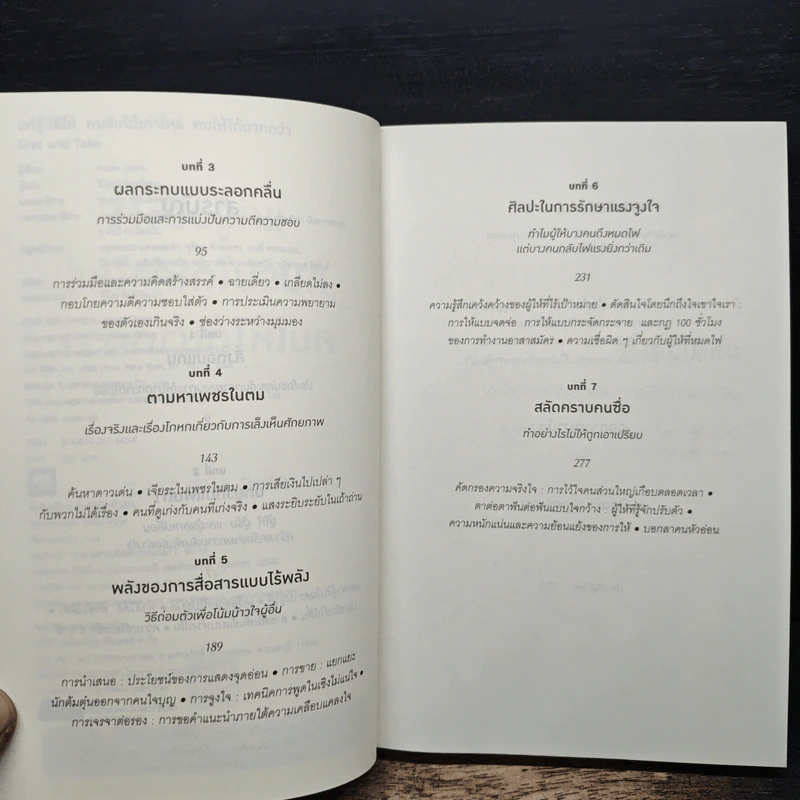 บทที่ 3
ผลกระทบแบบระลอกคลื่น
การร่วมมือและการแบ่งปันความดีความชอบ
95
การร่วมมือและความคิดสร้างสรรค์ • ฉายเดี่ยว • เกลียดไม่ลง •
กอบโกยความดีความชอบใส่ตัว • การประเมินความพยายาม
ของตัวเองเกินจริง • ช่องว่างระหว่างมุมมอง
บทที่ 4
ตามหาเพชรในตม
เรื่องจริงและเรื่องโกหกเกี่ยวกับการเล็งเห็นศักยภาพ
143
ค้นหาดาวเด่น • เจียระไนเพชรในตม • การเสียเงินไปเปล่า ๆ
กับพวกไม่ได้เรื่อง • คนที่ดูเก่งกับคนที่เก่งจริง • แสงระยิบระยับในเถ้าถ่าน
บทที่ 5
พลังของการสื่อสารแบบไร้พลัง
วิธีถ่อมตัวเพื่อโน้มน้าวใจผู้อื่น
189
การนำเสนอ : ประโยชน์ของการแสดงจุดอ่อน • การขาย : แยกแยะ
นักต้มตุ๋นออกจากคนใจบุญ • การจูงใจ : เทคนิคการพูดในเชิงไม่แน่ใจ •
การเจรจาต่อรอง : การขอคำแนะนำภายใต้ความเคลือบแคลงใจ
บทที่ 6
ศิลปะในการรักษาแรงจูงใจ
ทำไมผู้ให้บางคนถึงหมดไฟ
แต่บางคนกลับไฟแรงยิ่งกว่าเดิม
231
ความรู้สึกเคว้งคว้างของผู้ให้ที่ไร้เป้าหมาย • ตัดสินใจโดยนึกถึงใจเขาใจเรา :
การให้แบบจดจ่อ การให้แบบกระจัดกระจาย และกฎ 100 ชั่วโมง
ของการทำงานอาสาสมัคร • ความเชื่อผิด ๆ เกี่ยวกับผู้ให้ที่หมดไฟ
บทที่ 7
สลัดคราบคนซื่อ
ทำอย่างไรไม่ให้ถูกเอาเปรียบ
277
คัดกรองความจริงใจ : การไว้ใจคนส่วนใหญ่เกือบตลอดเวลา •
ตาต่อตาฟันต่อฟันแบบใจกว้าง : ผู้ให้ที่รู้จักปรับตัว •
ความหนักแน่นและความย้อนแย้งของการให้ • บอกลาคนหัวอ่อน